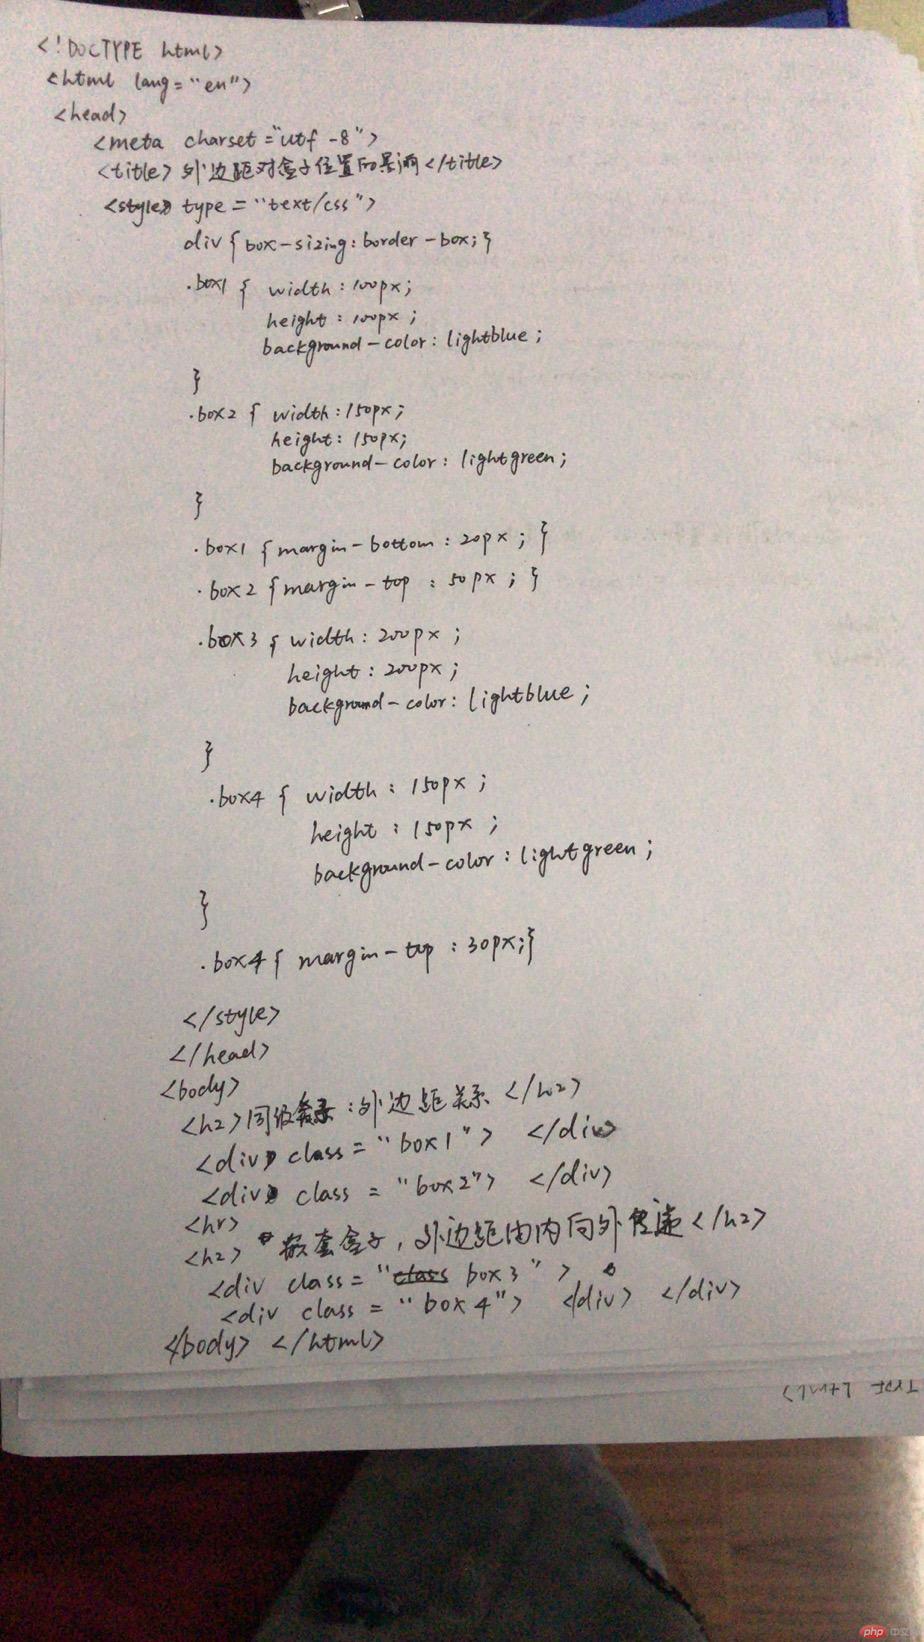 <!DOCTYPE html>
<html lang="en">
<head>
<meta charset="utf-8">
<title>外边距对盒子位置的影响</title>
<style> type="text/css">
div{box-sizing:border-box;}
.box1{ width:100px;
height:100px;
background-color:lightblue;
}
.box2{ width:150px;
height:150px;
background-color:lightgreen;
}
.box1{margin-bottom:20px;}
.box2{margin-top:50px;}
.box3{width:200px;
height:200px;
background-color:lightblue;
}
.box4{ width:150px;
height:150px;
background-color:lightgreen;
}
.box4{ margin-top:30px;}
</style>
</head>
<body>
<h2>同级:外边距关系</h2>
<div class="box1"> </div>
<div class="box2"> </div>
<hr>
<h2>嵌套盒子,外边距由内向外传递</h2>
<div class="class box3">
<div class="box4"> </div> </div>
</body> </html>
php 中文网